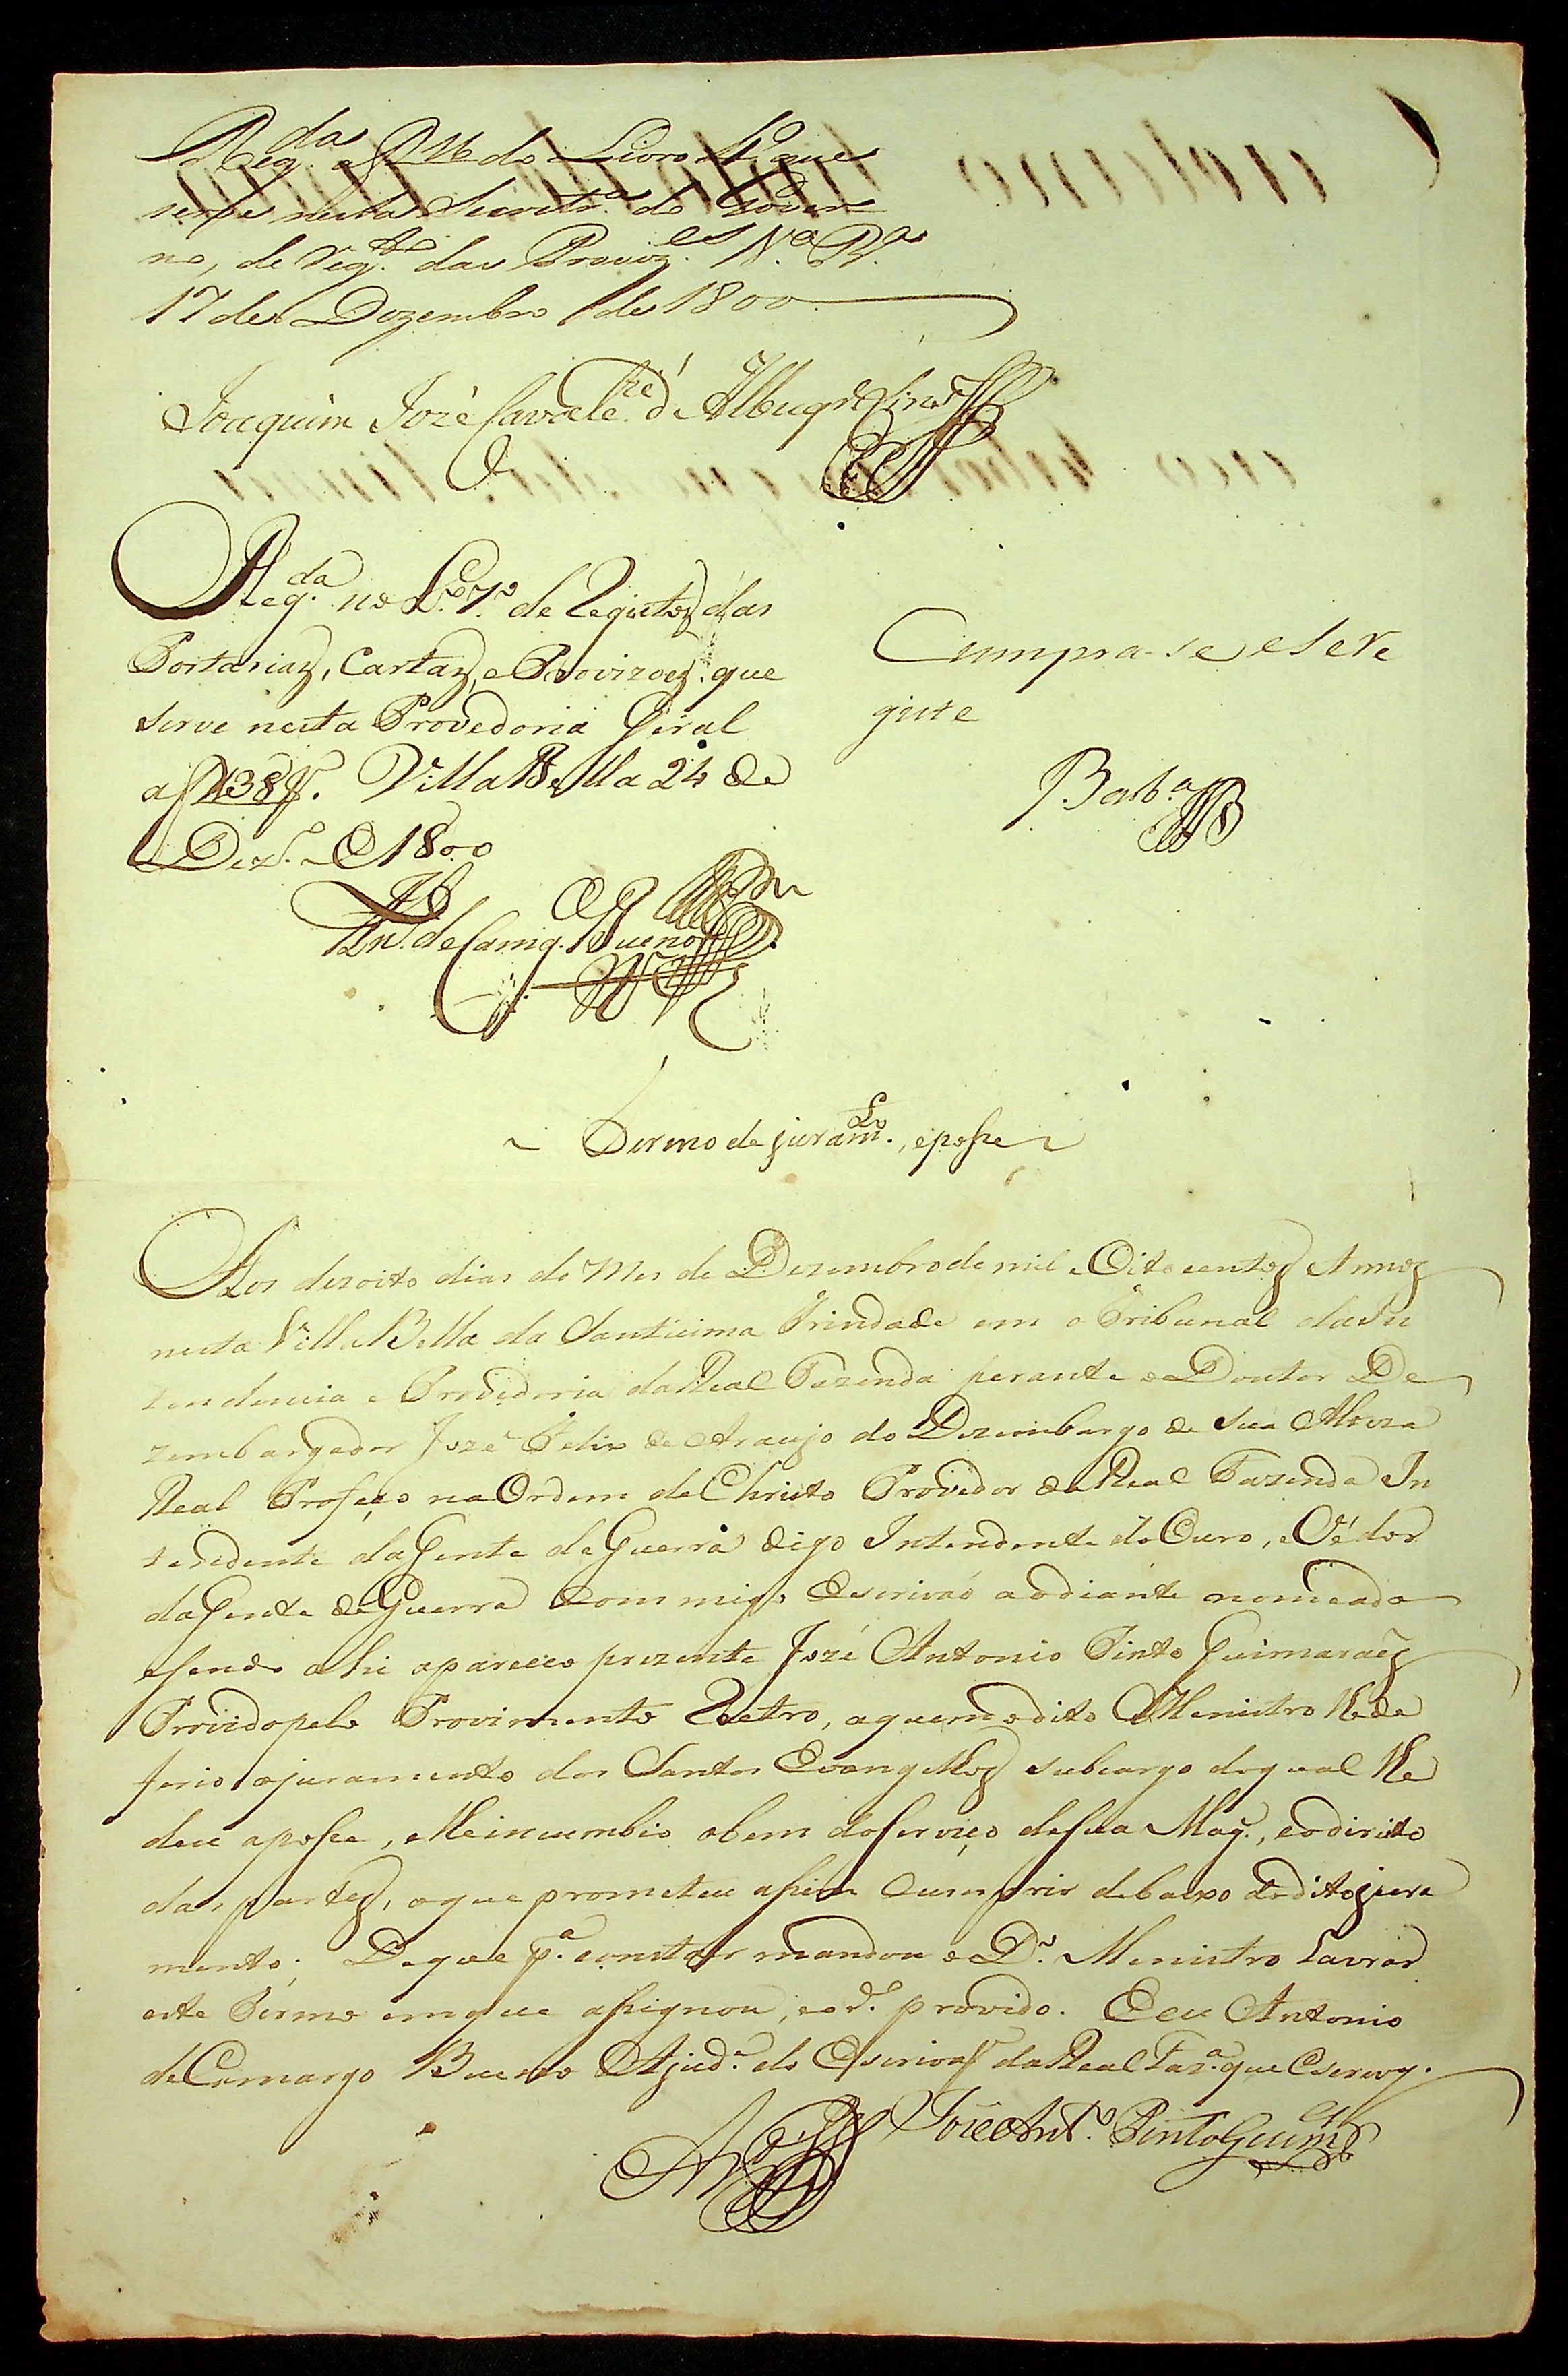 Reg.da a f 216 do Livro 4º que
serve nesta Secretr.ª do Gover
no, de reg.to das Provoz.es V.ª B.ª
17 de Dezembro de 1800
Joaquim José Cavalc.te d'Albuqr.e Lins
Reg.da no L.º 7.º de Registoz das
Portariaz, Cartaz, e Provizoez que
serve nesta Provedoria Geral
a f 138 v. Villa Bella 24 de
Dezb.º de 1800
Ant.º de Camg.º Bueno
Cumpra-se e se re
giste
Barb.ª
Termo de juram.to, e posse
Aos dezoito dias do Mes de Dezembro de mil e Oitocentoz Annoz
nesta Villa Bella da Santicima Trindade em o Tribunal da In
tendencia e Provedoria da Real Fazenda perante o Doutor De
zembargador José Felix de Araujo do Dezembargo de Sua Alteza
Real Profeço na Ordem de Christo Provedor da Real Fazenda In
tendente da Gente de Guerra digo Intendente do Ouro, e Védor
da Gente de Guerra Commigo Escrivaõ ao diante nomeado
e sendo ahi apareceo prezente José Antonio Pinto Guimaraẽz
Provido pelo Provimento Retro, a quem o dito Menistro lhe de
ferio o juramento dos Santos Evangelhoz subcargo do qual lhe
deu a posse, e lhe incumbio o bem do serviço de sua Mag.e, e o dirieto
das partez, o que prometeu assim Cumprir debaixo do dito jura
mento; De que p.ª constar mandou o D.º Menistro Lavrar
este Termo em que assignou, e o d.º provido. E eu Antonio
de Camargo Bueno Ajud.e do Escrivaõ da Real Faz.ª que Escrevy.
José Ant.º Pinto Guim.es